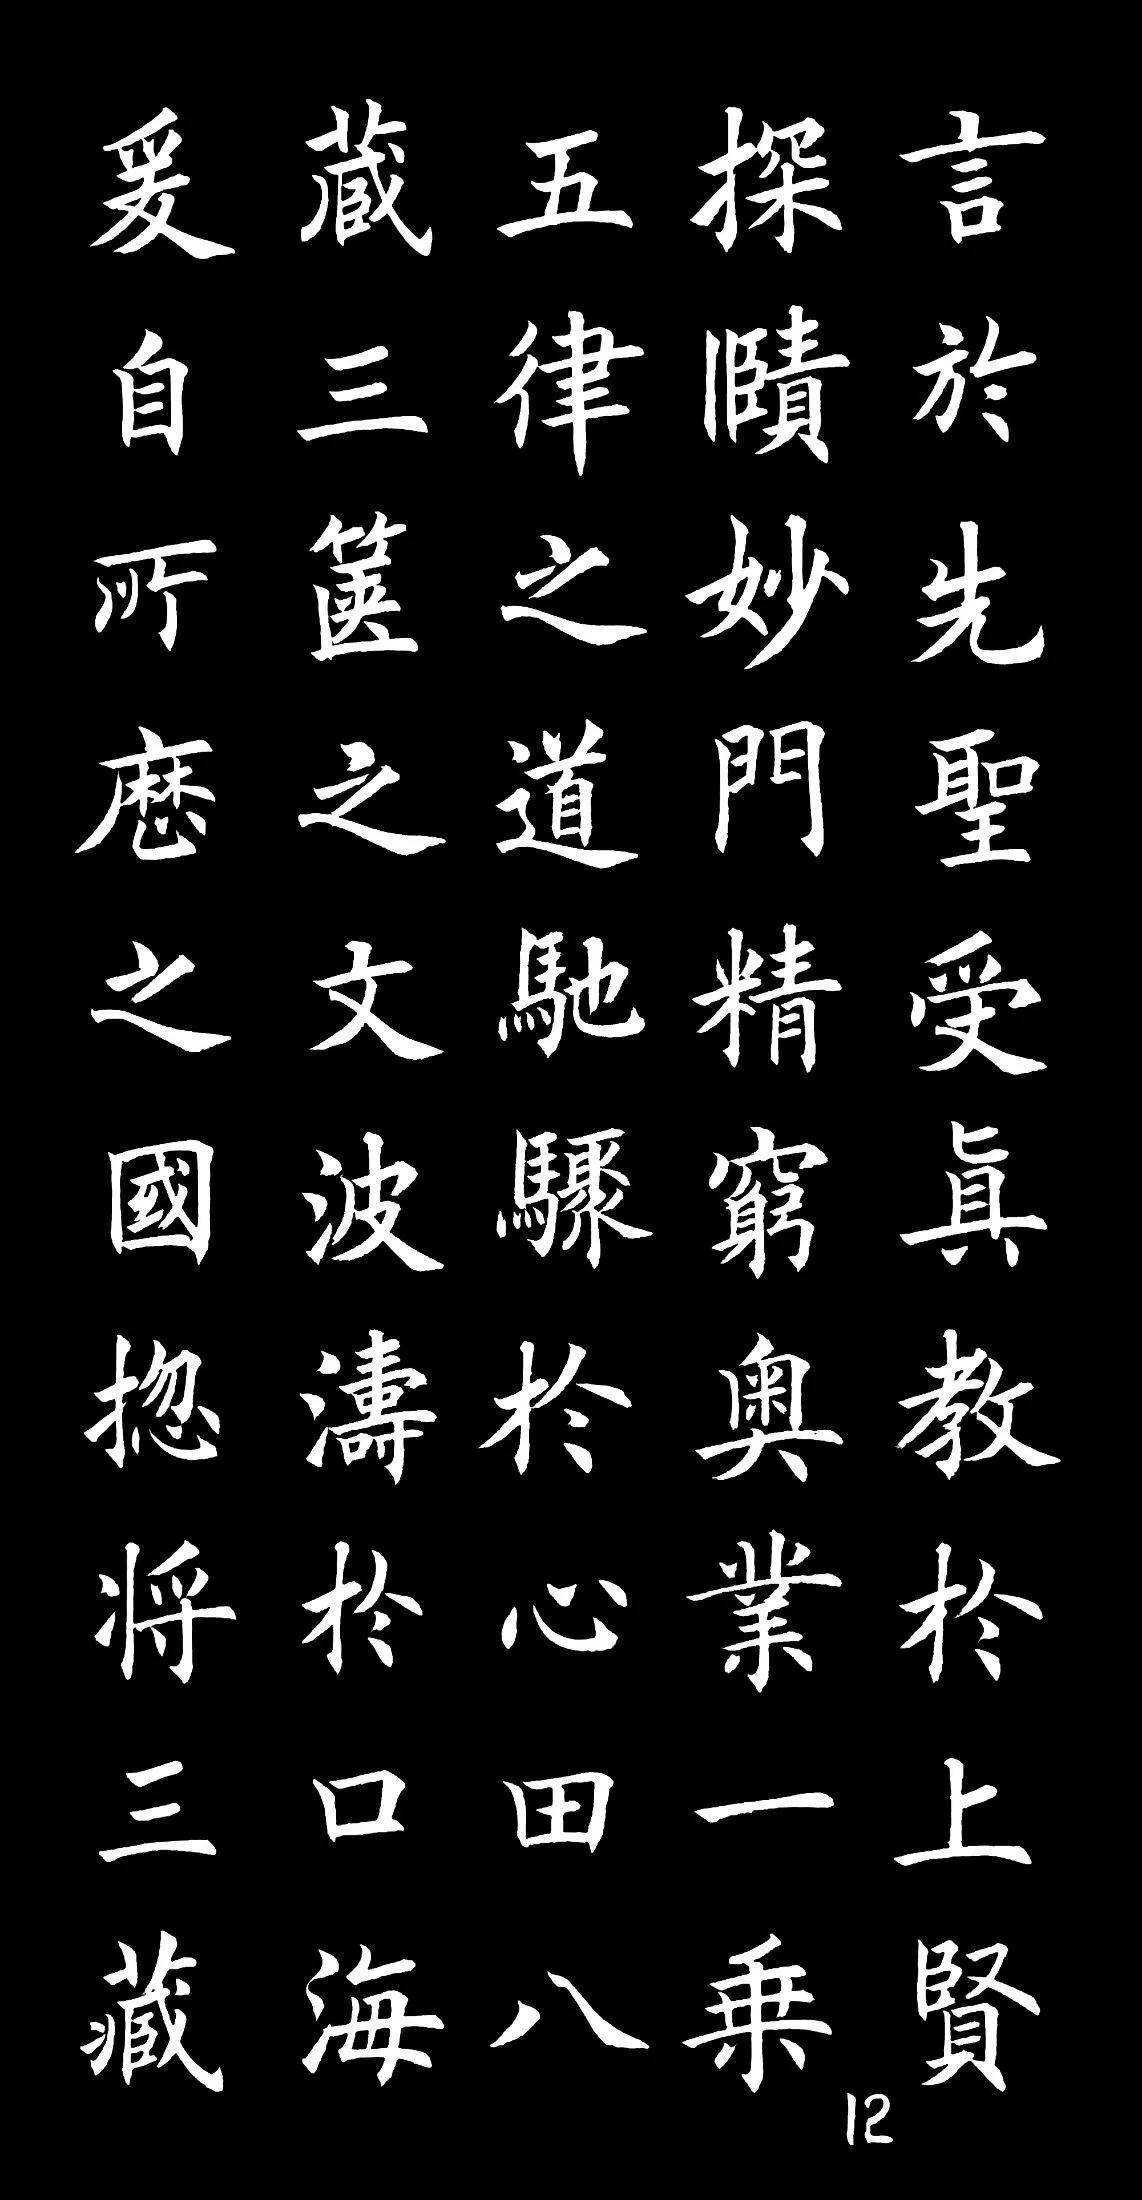 言於先聖受真教於上賢
探賾妙門精窮奧業一乗
五律之道馳驟於心田八
蔵三篋之文波濤於口海
爰自所歷之國捴将三藏
12